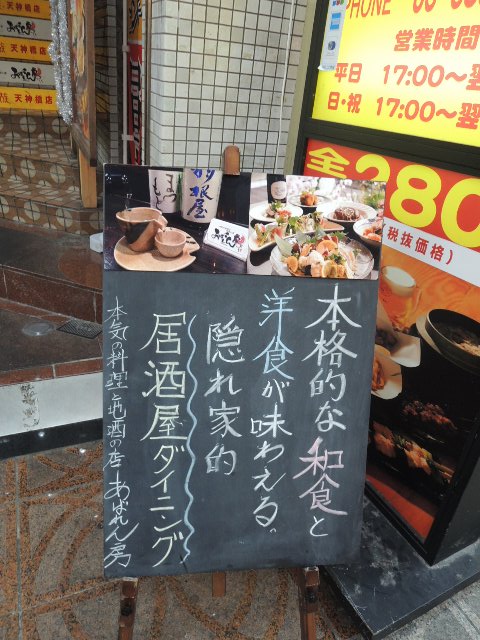 本格的な和食と
洋食が味わえる。
隠れ家的
居酒屋ダイニング
本気の料理と地酒の店 あばれん房
羽根屋
天神橋店
天神橋店
PHONE
営業時間
平日 17:00～翌
日・祝 17:00～翌
全
280
(税抜価格)